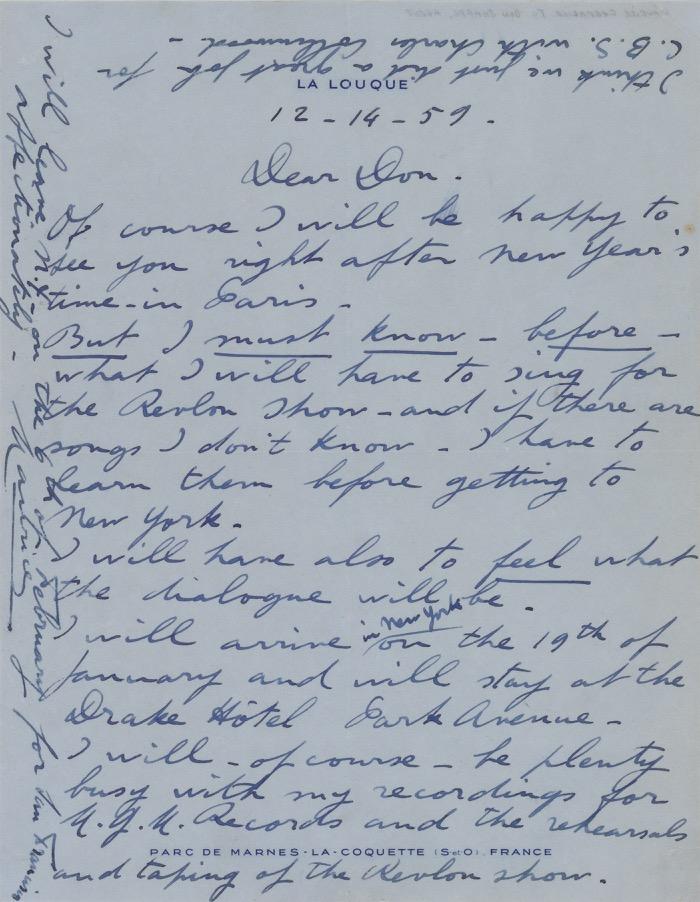 LA LOUQUE
12-14-59.
Dear Don.
Of course I will be happy to
see you right after New Year's
time-in Paris-
But I must know - before -
what I will have to sing for
the Revlon Show - and if there are
songs I don't know - I have to
learn them before getting to
New York.
I will have also to feel what
the dialogue will be.
I will arrive in New York on the 19th of
January and will stay at the
Drake Hôtel Park Avenue -
I will - of course - be plenty
busy with my recordings for
M.G.M. Records and the rehearsals
PARC DE MARNES-LA-COQUETTE (S et O) FRANCE
and taping of the Revlon show.
I will leave N.Y. on the 6th of February for San Francisco
affectionately -
Maurice
I think we just did a great job for
C.B.S. with Charles Collingwood -